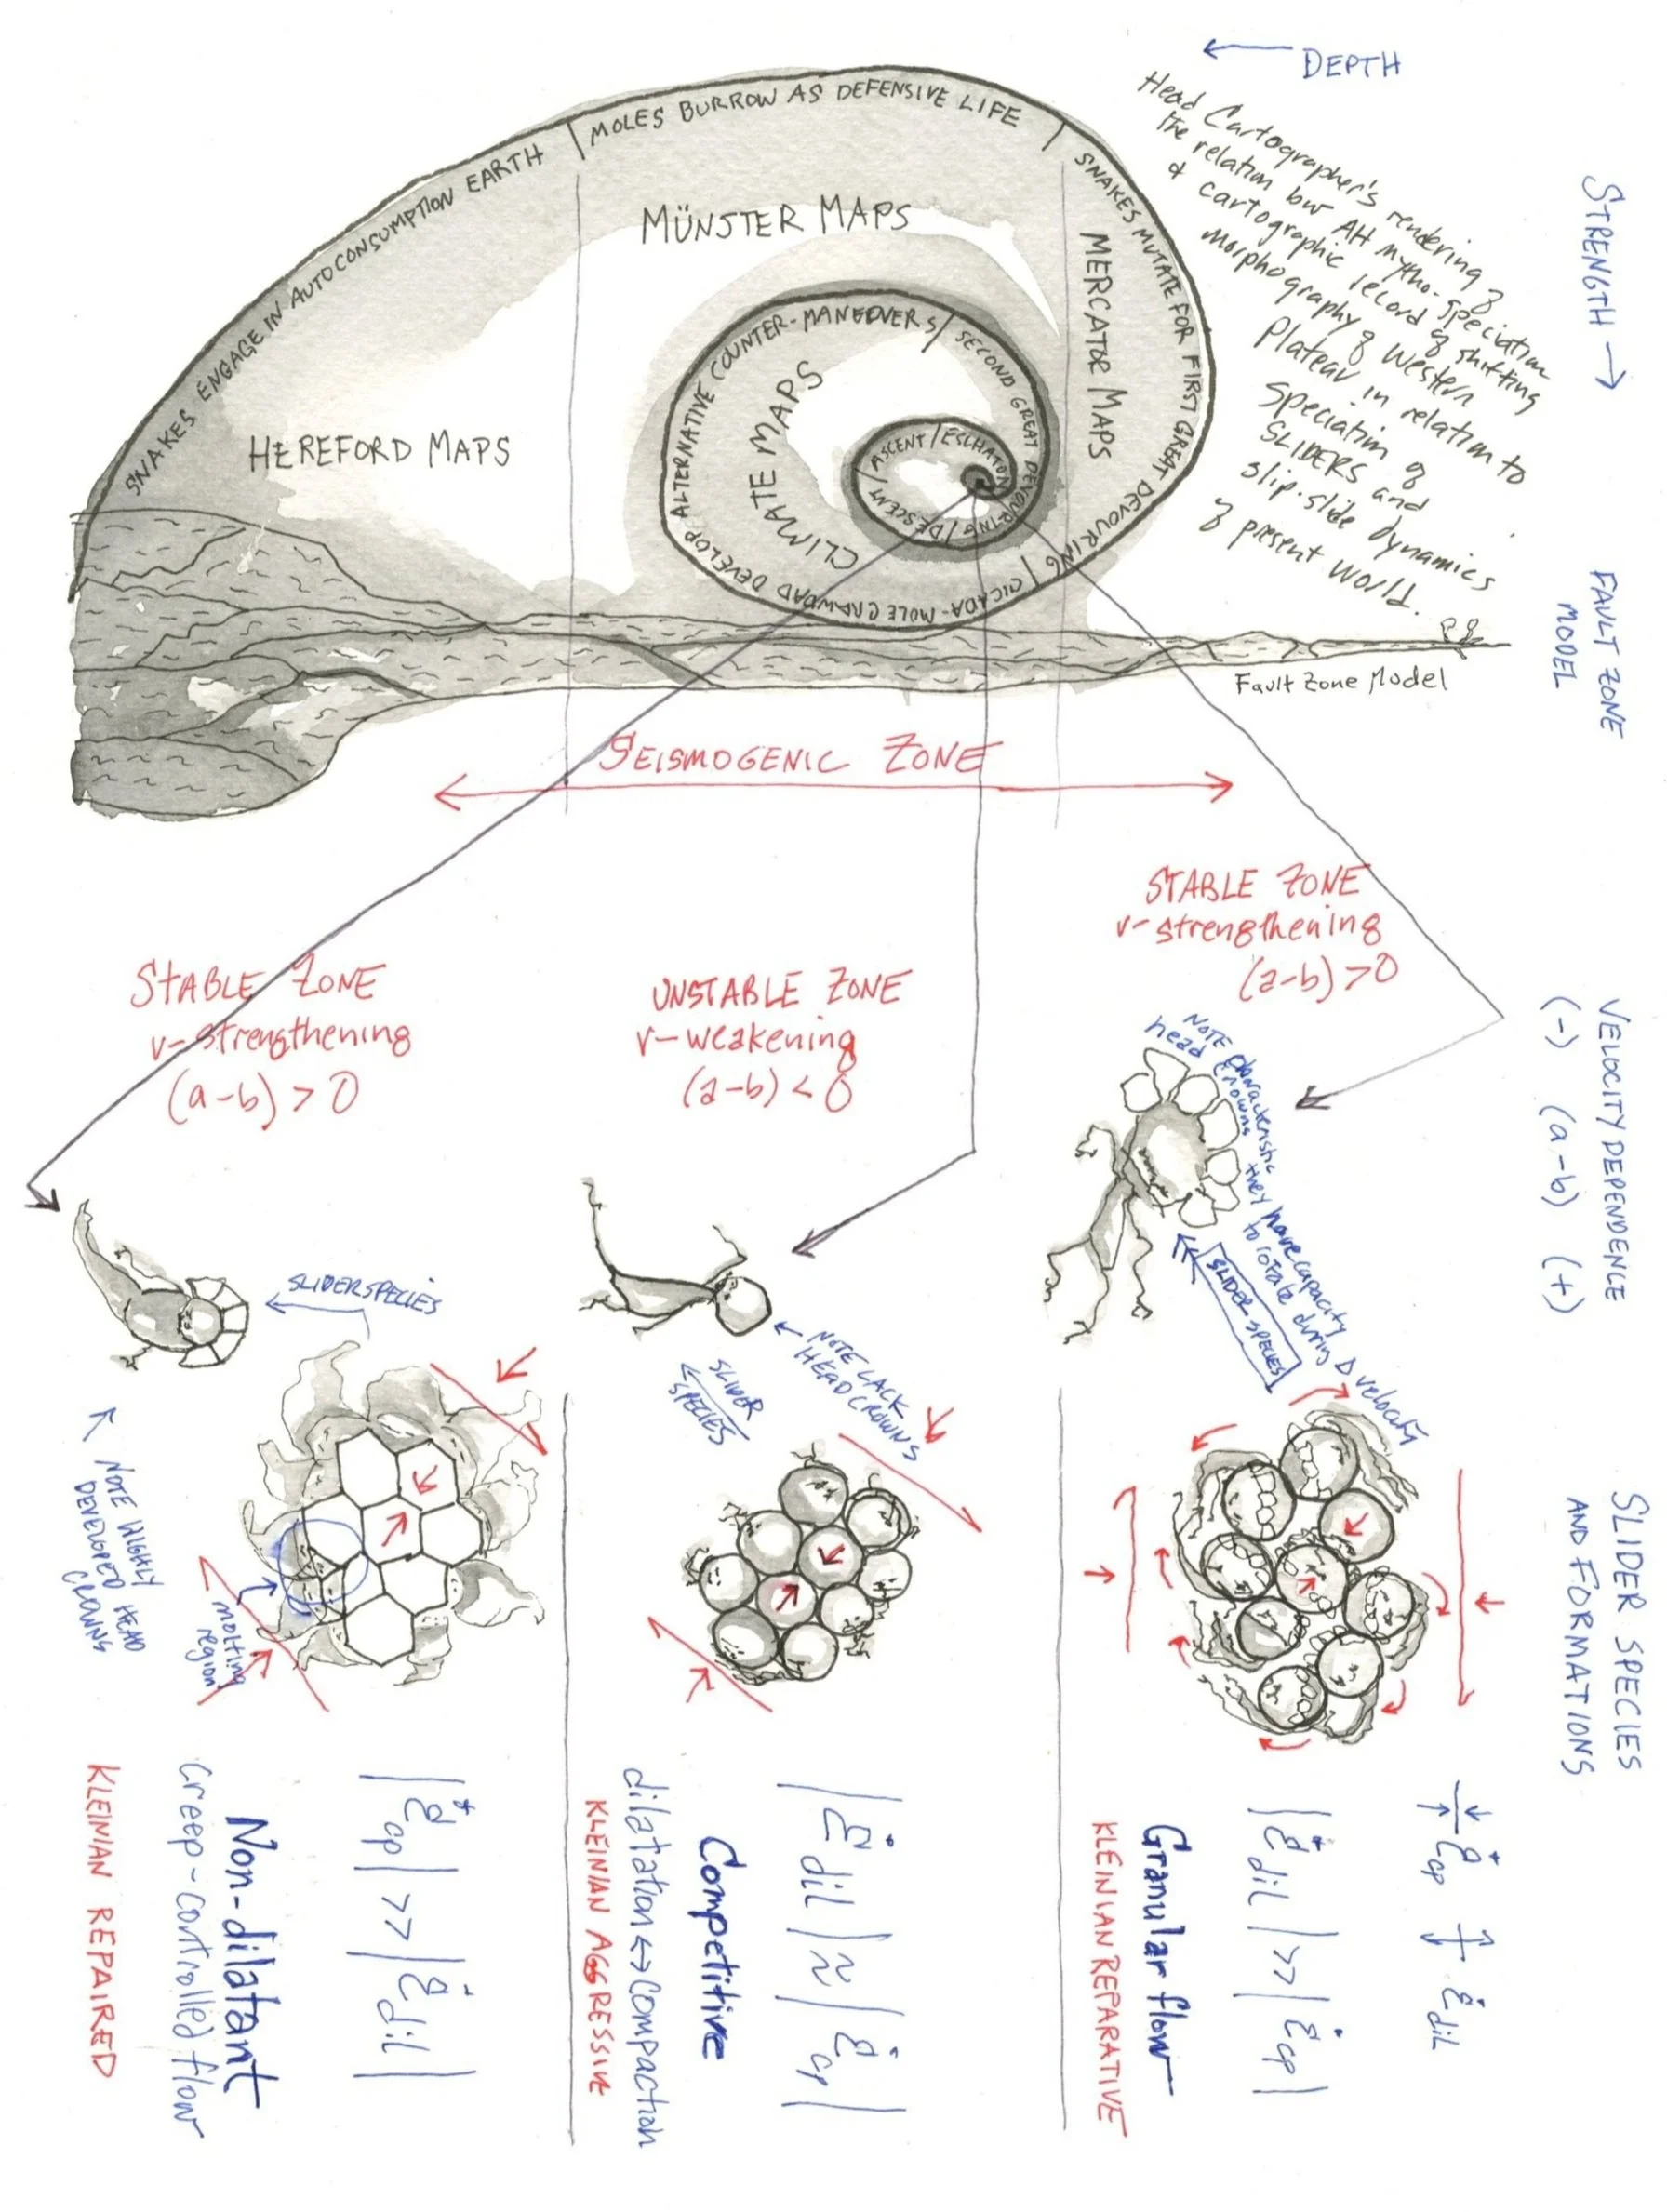 ← DEPTH
Head Cartographer's rendering of
the relation bw AH mytho-speciation
& cartographic record of shifting
morphography of Western
Plateau in relation to
speciation of
SLIDERS and
slip-slide dynamics
of present world.
STRENGTH →
SNAKES ENGAGE IN AUTOCONSUMPTION EARTH | MOLES BURROW AS DEFENSIVE LIFE | SNAKES MUTATE FOR FIRST GREAT DEVOURING | CICADA-MOLE CRAWDAD DEVELOP ALTERNATIVE COUNTER-MANEOVERS | SECOND GREAT DEVOURING | DESCENT | ASCENT | ESCHATON
HEREFORD MAPS
MÜNSTER MAPS
MERCATOR MAPS
CLIMATE MAPS
FAULT ZONE
MODEL
Fault Zone Model
SEISMOGENIC ZONE
STABLE ZONE
v-strengthening
(a-b) > 0
UNSTABLE ZONE
v-weakening
(a-b) < 0
STABLE ZONE
v-strengthening
(a-b) > 0
VELOCITY DEPENDENCE
(-) (a-b) (+)
SLIDER SPECIES
NOTE HIGHLY
DEVELOPED HEAD
CROWNS
molting
region
SLIDER
SPECIES
NOTE LACK
HEAD CROWNS
NOTE characteristic
head crowns
they have capacity
to rotate during Δ velocity
SLIDER SPECIES
SLIDER SPECIES
AND FORMATIONS
|ε̇cp| >> |ε̇dil|
Non-dilatant
creep-controlled flow
KLEINIAN REPAIRED
|ε̇dil| ≈ |ε̇cp|
Competitive
dilatation ↔ compaction
KLEINIAN AGGRESSIVE
ε̇cp ε̇dil
|ε̇dil| >> |ε̇cp|
Granular flow
KLEINIAN REPARATIVE